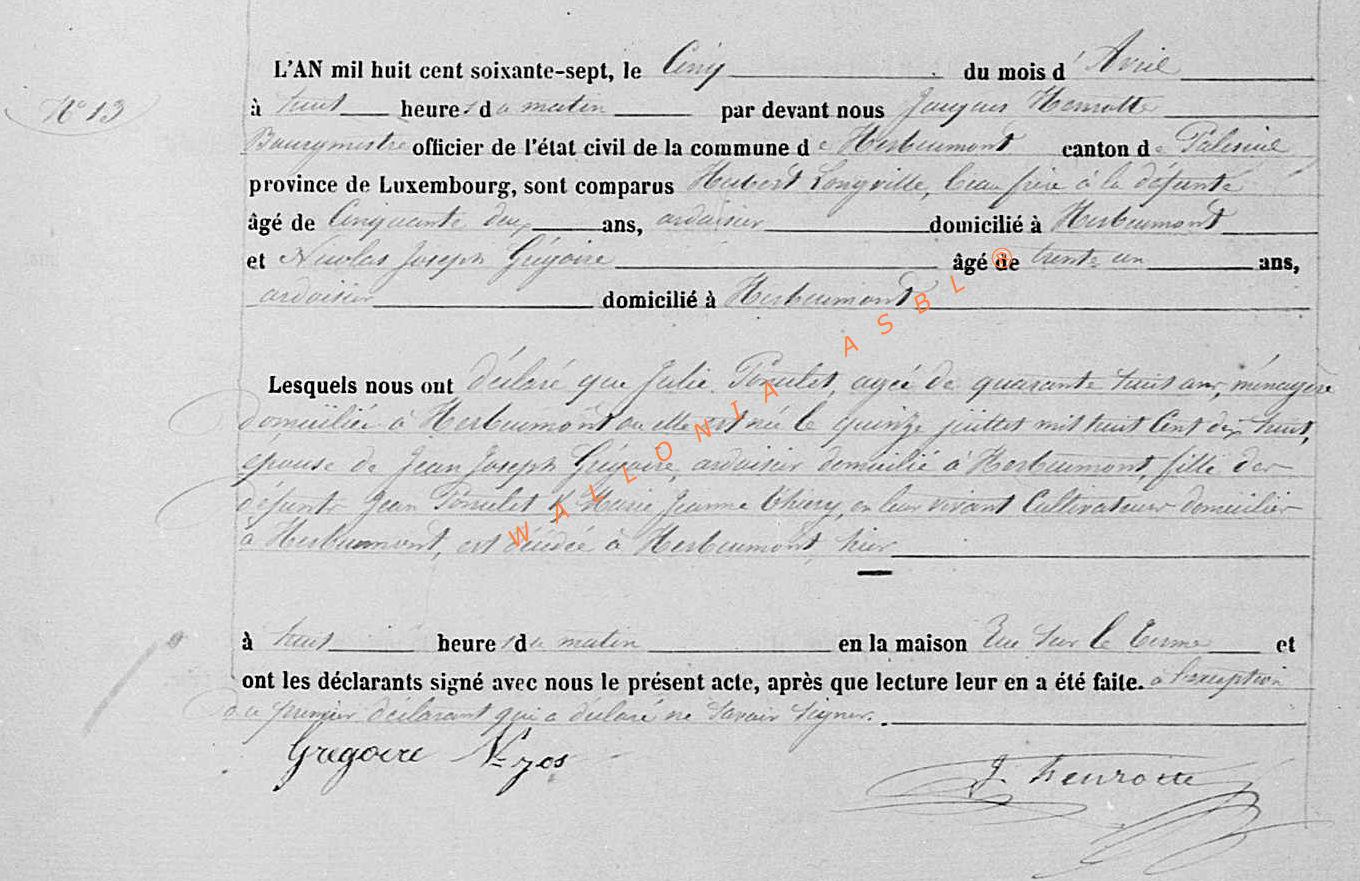 L'AN mil huit cent soixante-sept, le Cinq du mois d'Avril
N° 13
à huit heures du matin par devant nous Jacques Henrotte
Bourgmestre officier de l'état civil de la commune de Herbeumont canton de Paliseul
province de Luxembourg, sont comparus Hubert Longville, beau frère à la défunte
âgé de Cinquante deux ans, ardoisier domicilié à Herbeumont
et Nicolas Joseph Grégoire âgé de trente un ans,
ardoisier domicilié à Herbeumont
Lesquels nous ont déclaré que Julie Poncelet, agée de quarante huit ans, ménagère
domiciliée à Herbeumont ou elle est née le quinze juillet mil huit Cent dix huit,
épouse de Jean Joseph Grégoire, ardoisier domicilié à Herbeumont, fille des
défunts Jean Poncelet & Marie Jeanne Thiery, en leur vivant Cultivateurs domiciliés
à Herbeumont, est décédée à Herbeumont, hier
à huit heures du matin en la maison Rue Sur le Terme et
ont les déclarants signé avec nous le présent acte, après que lecture leur en a été faite. à l'exception
du premier déclarant qui a déclaré ne Savoir Signer.
Gregoire N= jos
J. henrotte
WALLONIA ASBL ®